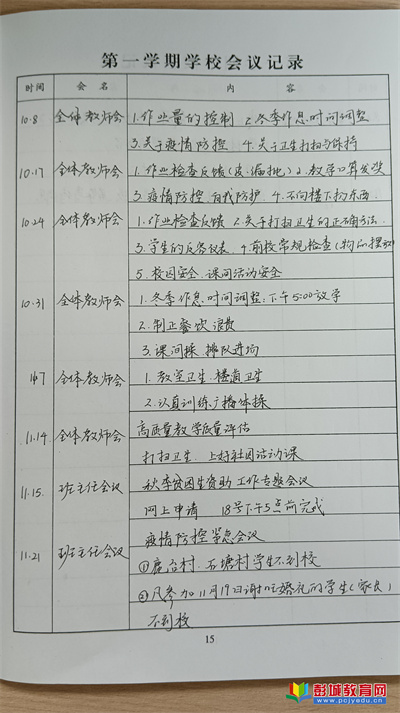 第一学期学校会议记录
时间 会名 内容
10.8 全体教师会 1.作业量的控制 2.冬季作息时间调整
3.关于疫情防控 4.关于卫生打扫与保持
10.17 全体教师会 1.作业检查反馈 2.数学口算发奖
3.疫情防控.自我防护 4.不向楼下扔东西
10.24 全体教师会 1.作业检查反馈 2.关于打扫卫生的正确方法.
3.学生的仪表 4.前校常规检查(物品摆
5.校园安全.课间活动安全
10.31 全体教师会 1.冬季作息时间调整:下午5:00放学
2.制止餐饮浪费
3.课间操.排队进场
全体教师会 1.教室卫生.楼道卫生
2.认真训练广播体操
11.14. 全体教师会 高质量教学质量评估
打扫卫生.上好社团活动课
11.15. 班主任会议 秋季贫困生资助工作专题会议
网上申请 18号下午5点前完成
11.21 班主任会议 疫情防控紧急会议
①唐冶村.石塘村学生不到校
②凡参加11月19日婚礼的学生(家长)
不到校
15
彭城教育网
www.pcjyedu.cn